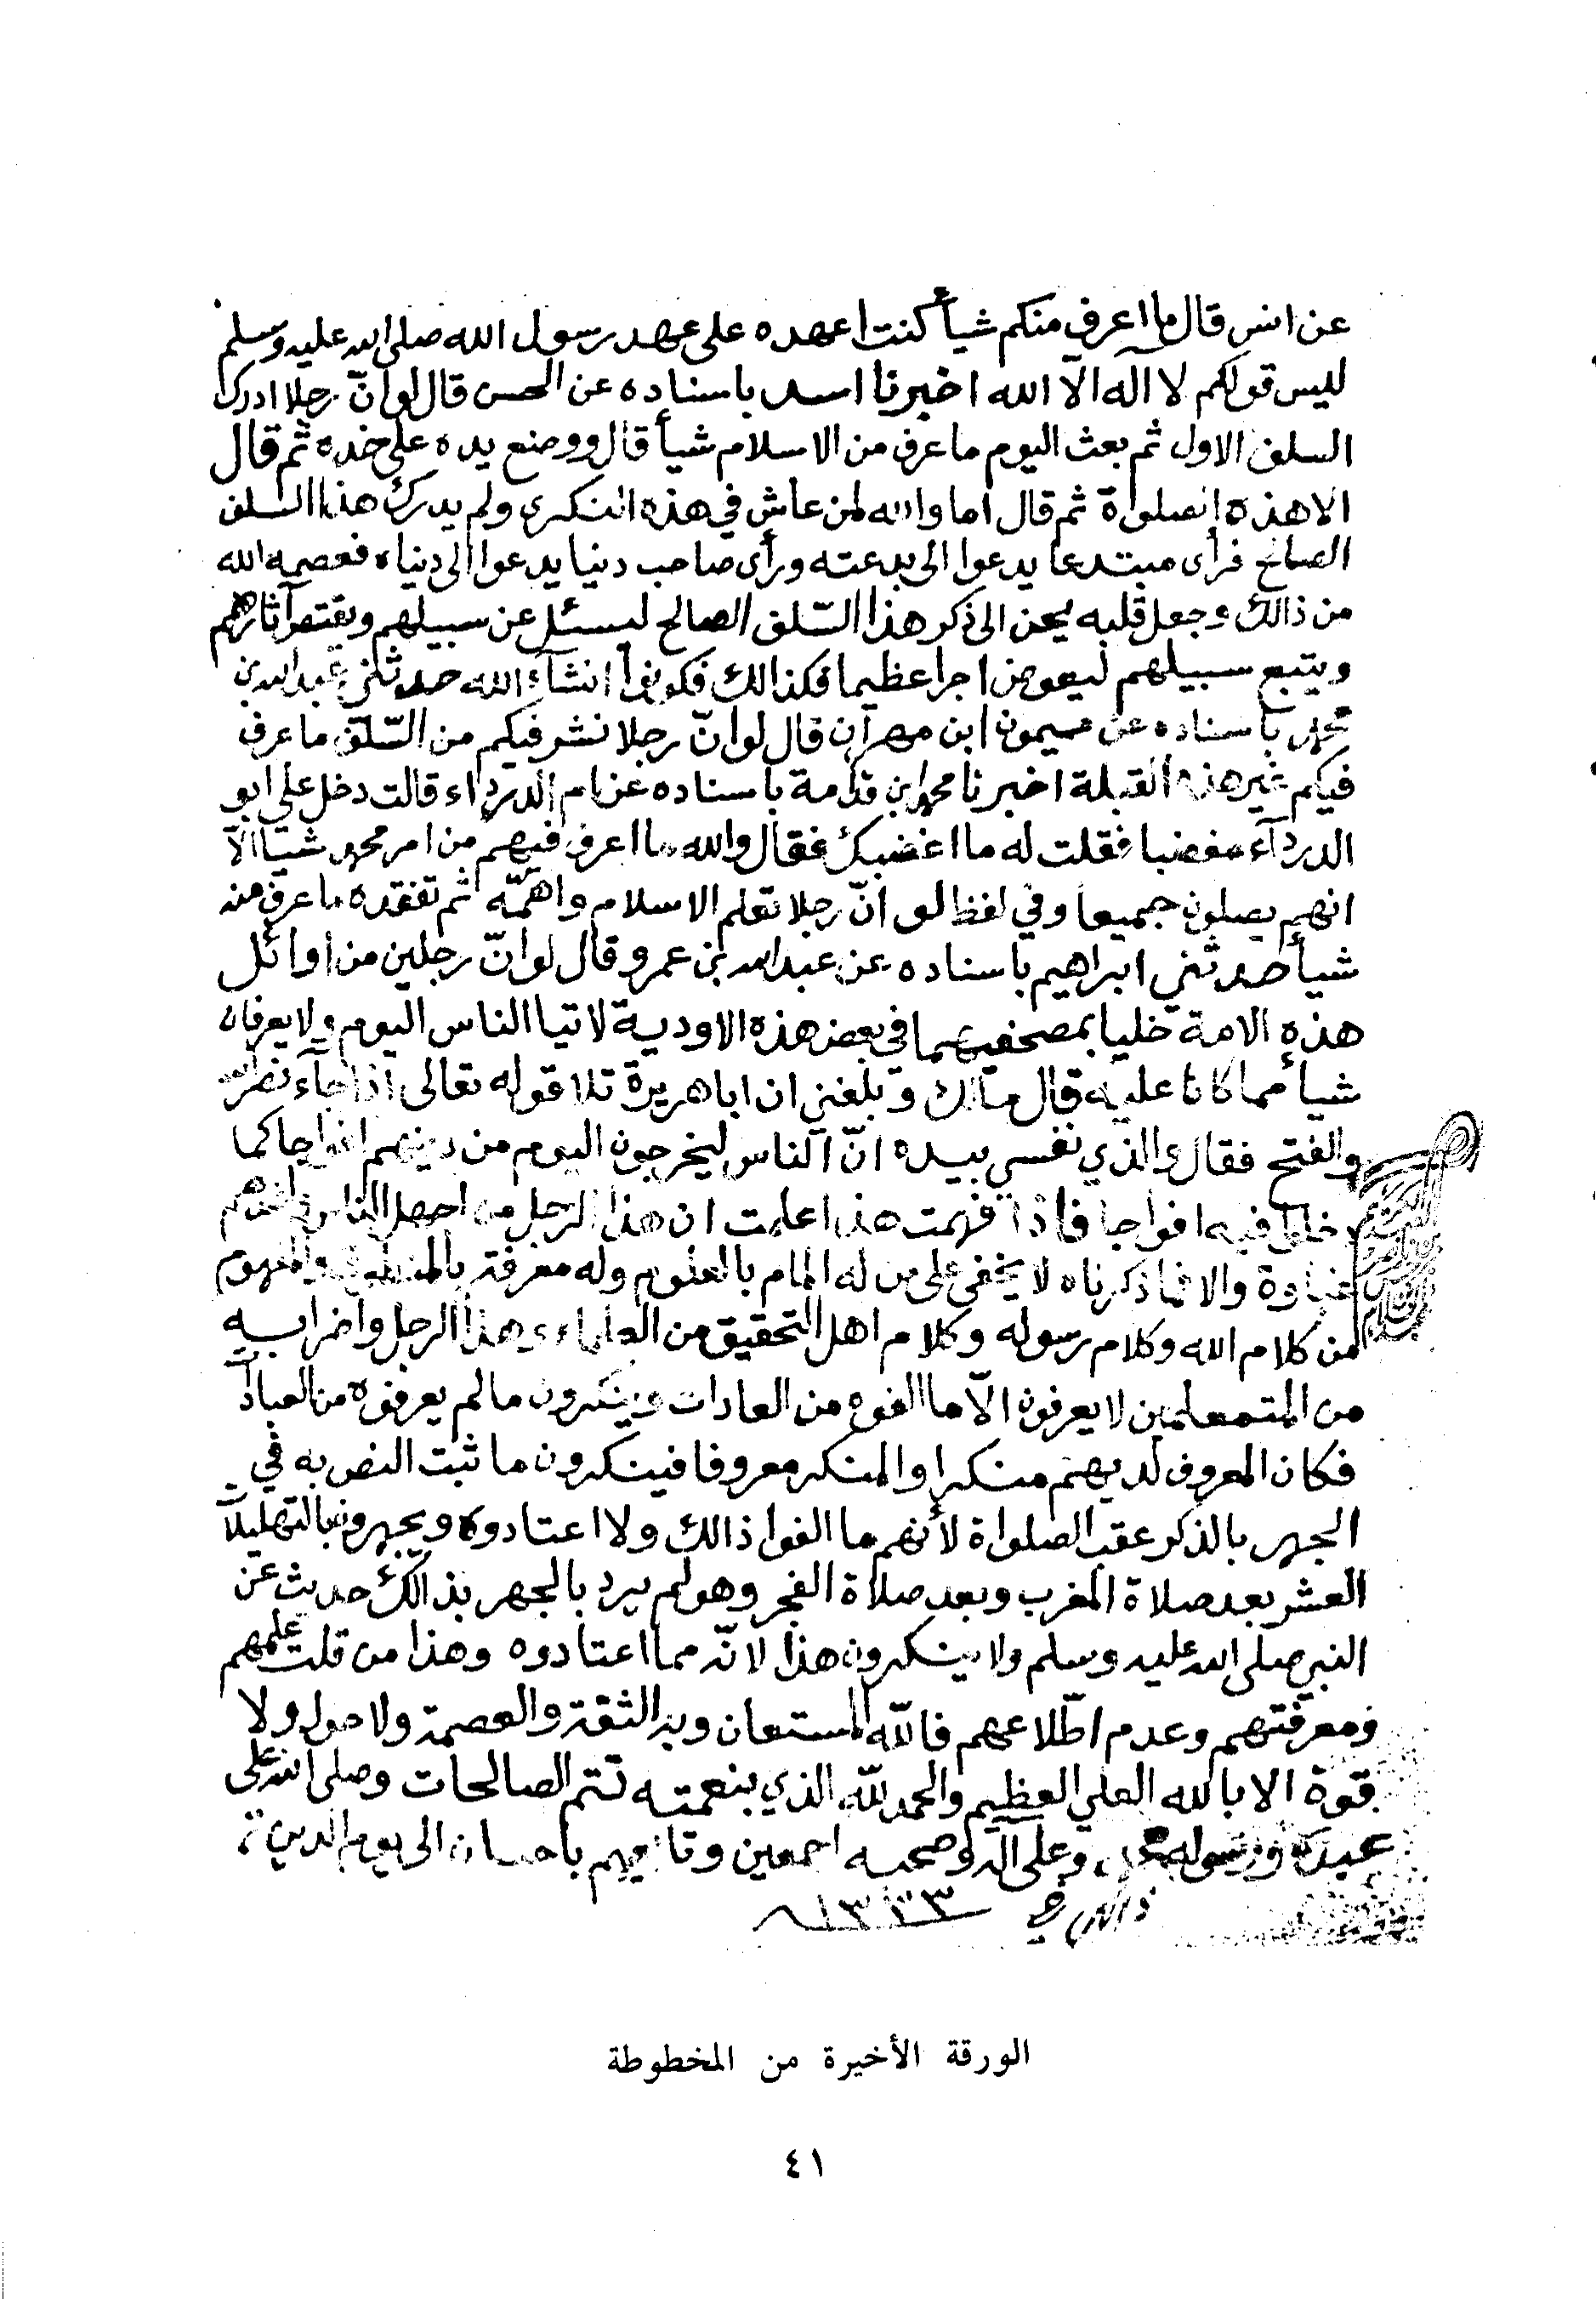 عن انس قال ما اعرف منكم شيأ كنت اعهده على عهد رسول الله صلى الله عليه وسلم
ليس قولكم لا اله الّا الله اخبرنا اسد باسناده عن الحسن قال لو انّ رجلا ادرك
السلف الاول ثم بعث اليوم ما عرف من الاسلام شيأ قال ووضع يده على خده ثم قال
الا هذه الصلواة ثم قال اما والله لمن عاش في هذه النكرى ولم يدرك هذا السلف
الصالح فرأى مبتدعا يدعوا الى بدعته ورأى صاحب دنيا يدعوا الى دنياه فعصمه الله
من ذالك وجعل قلبه يحن الى ذكر هذا السّلف الصالح ليسئل عن سبيلهم ويقتص آثارهم
ويتبع سبيلهم ليعوض اجرا عظيما فكذالك فكونوا انشآء الله حدثني عبد الله بن
محمد باسناده عن ميمون ابن مهران قال لو انّ رجلا نشر فيكم من السّلف ما عرف
فيكم غير هذه القبلة اخبرنا محمد ابن قدامة باسناده عن ام الدرداء قالت دخل علي ابو
الدردآء مغضبا فقلت له ما اغضبك فقال والله ما اعرف فيهم من امر محمد شيأ الّا
انهم يصلون جميعا وفي لفظ لو انّ رجلا تعلم الاسلام واهمّه ثم تفقده ما عرف منه
شيأ حدثني ابراهيم باسناده عن عبد الله بن عمرو قال لو انّ رجلين من اوائل
هذه الامة خليا بمصحفيهما في بعض هذه الاودية لاتيا الناس اليوم ولا يعرفان
شيأ مما كانا عليه قال مالك وبلغني ان ابا هريرة تلا قوله تعالى اذا جآء نصر الله
والفتح فقال والذي نفسي بيده انّ الناس ليخرجون اليوم من دينهم افواجا كما
دخلوا فيه افواجا فاذا فهمت هذا علمت ان هذا الرجل من اجهل الناس
غباوة والا فما ذكرناه لا يخفى على من له المام بالعلوم وله معرفة بالمنطوق والمفهوم
من كلام الله وكلام رسوله وكلام اهل التحقيق من العلماء وهذا الرجل واضرابه
من المتمعلمين لا يعرفون الّا ما الفوه من العادات وينكرون ما لم يعرفوه من العبادات
فكان المعروف لديهم منكرا والمنكر معروفا فينكرون ما ثبت النص به في
الجهر بالذكر عقب الصلواة لأنهم ما الفوا ذالك ولا اعتادوه ويجهرون بالتهليلات
العشر بعد صلاة المغرب وبعد صلاة الفجر وهو لم يرد بالجهر بذالك حديث عن
النبي صلى الله عليه وسلم ولا ينكرون هذا لانّه مما اعتادوه وهذا من قلت علمهم
ومعرفتهم وعدم اطّلاعهم فاللّه المستعان وبه الثقة والعصمة ولا حول ولا
قوة الا بالله العلي العظيم والحمد للّه الذي بنعمته تتم الصالحات وصلى الله على
عبده ورسوله محمد وعلى آله وصحبه اجمعين وتابعيهم باحسان الى يوم الدين
١٣٣٣
الورقة الأخيرة من المخطوطة
٤١